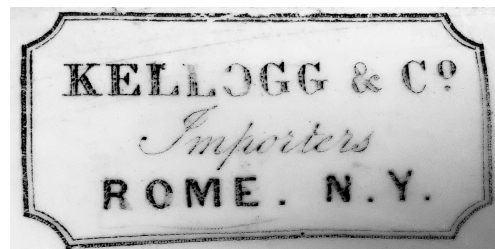 KELLOGG & Cº
Importers
ROME. N.Y.